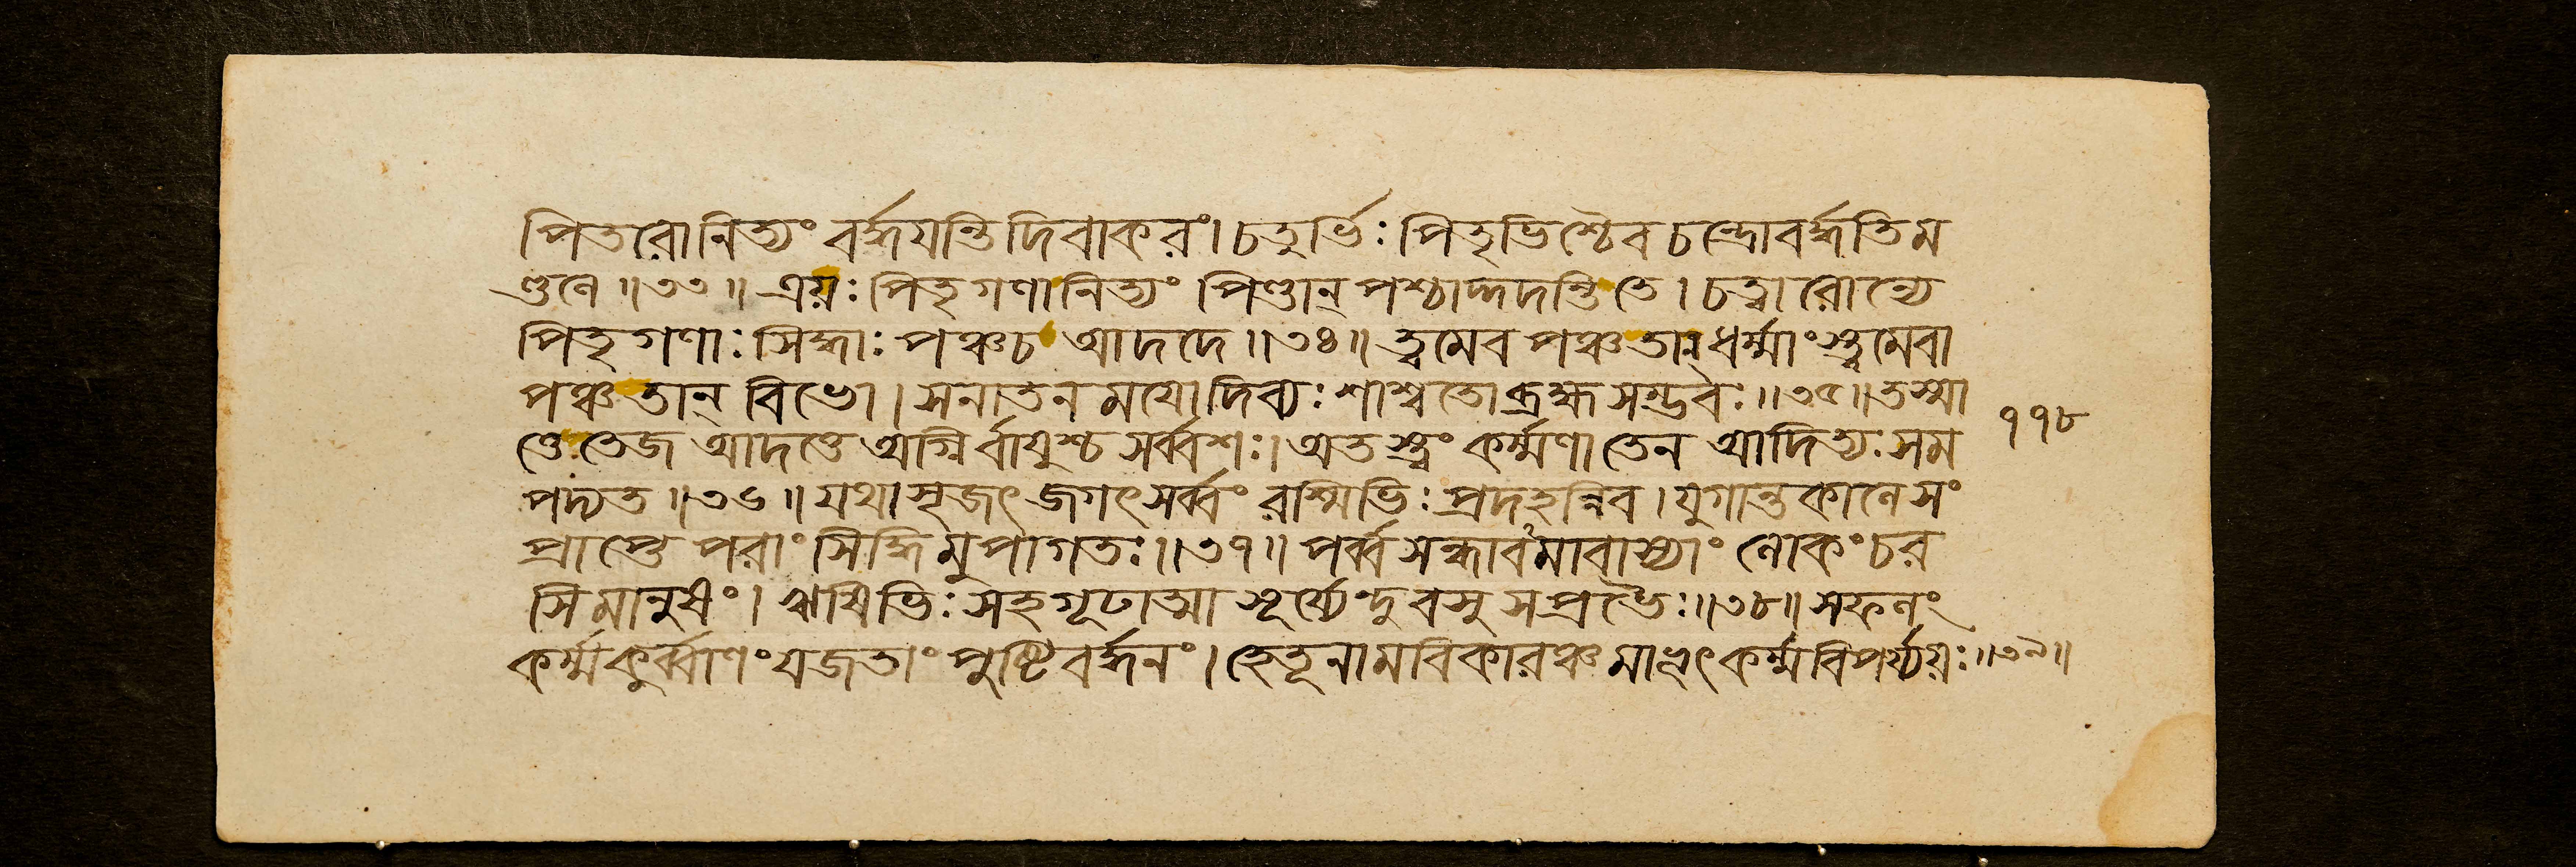 পিতরো নিত্যং বর্দ্ধযন্তি দিবাকরং। চতুর্ভিঃ পিতৃভিশ্চৈব চন্দ্রো বর্দ্ধতি ম
ণ্ডলে॥৩৩॥ ত্রয়ঃ পিতৃগণা নিত্যং পিণ্ডান্ পশ্চাদ্দদন্তি তে। চত্বারোন্যে
পিতৃগণাঃ সিদ্ধাঃ পঞ্চ চ আদদে॥৩৪॥ ত্বমেব পঞ্চ তান্ ধর্ম্মাংস্ত্বমেবা
পঞ্চ তান্ বিভো। সনাতনময়ো দিব্যঃ শাশ্বতো ব্রহ্মসম্ভবঃ॥৩৫॥ তস্মা
ত্তে তেজ আদত্তে অগ্নির্বায়ুশ্চ সর্ব্বশঃ। অতস্ত্বং কর্ম্মণা তেন আদিত্যঃ সম
পদ্যত॥৩৬॥ যথাসৃজৎ জগৎ সর্ব্বং রশ্মিভিঃ প্রদহন্নিব। যুগান্তকালে সং
প্রাপ্তে পরাং সিদ্ধিমুপাগতঃ॥৩৭॥ পর্ব্বসন্ধাবমাবাস্যাং লোকং চর
সি মানুষং। ঋষিভিঃ সহ গূঢাত্মা সূর্য্যেন্দুবসুসপ্রভৈঃ॥৩৮॥ সফলং
কর্ম্ম কুর্ব্বাণং যজতাং পুষ্টিবর্দ্ধনং। হেতূনামবিকারঞ্চ মাভূৎ কর্ম্মবিপর্য্যয়ঃ॥৩৯॥
১১৮